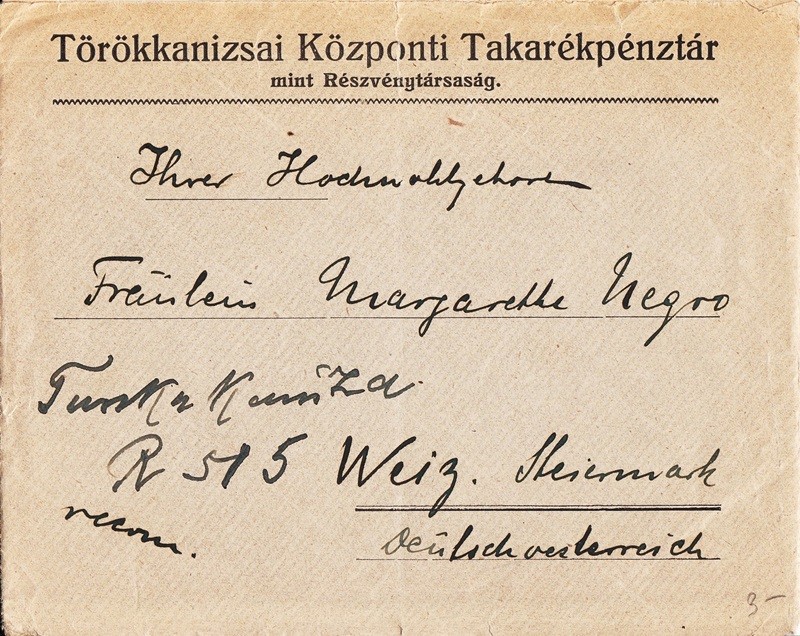 Törökkanizsai Központi Takarékpénztár
mint Részvénytársaság.
Ihrer Hochwohlgeboren
Fräulein Margarethe Negro
Turska Kaniža
R 515 Weiz. Steiermark
recom.
Deutschoesterreich
3-